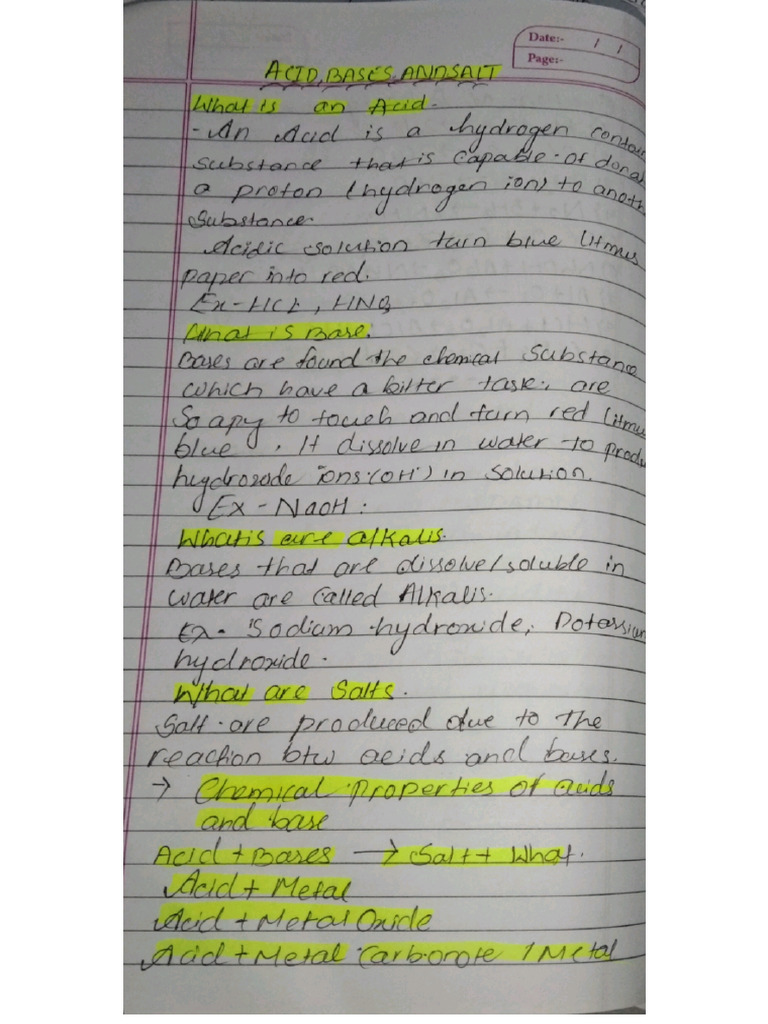 Date:- / /
Page:-
ACID, BASES AND SALT
What is an Acid.
- An Acid is a hydrogen contai
substance that is capable of dona
a proton (hydrogen ion) to anoth
substance.
Acidic solution turn blue litmus
paper into red.
Ex - HCl, HNO3
What is Base.
Bases are found the chemical substance
which have a bitter task, are
Soapy to touch and turn red litmus
blue. It dissolve in water to produ
hydroxide ions (OH-) in solution.
Ex - NaOH:
What is are alkalis.
Bases that are dissolve/soluble in
water are called Alkalis.
Ex - Sodium hydroxide, Potassium
hydroxide.
What are Salts.
Salt are produced due to the
reaction btw acids and bases.
→ Chemical properties of acids
and base
Acid + Bases → Salt + What.
Acid + Metal
Acid + Metal Oxide
Acid + Metal Carbonate / Metal